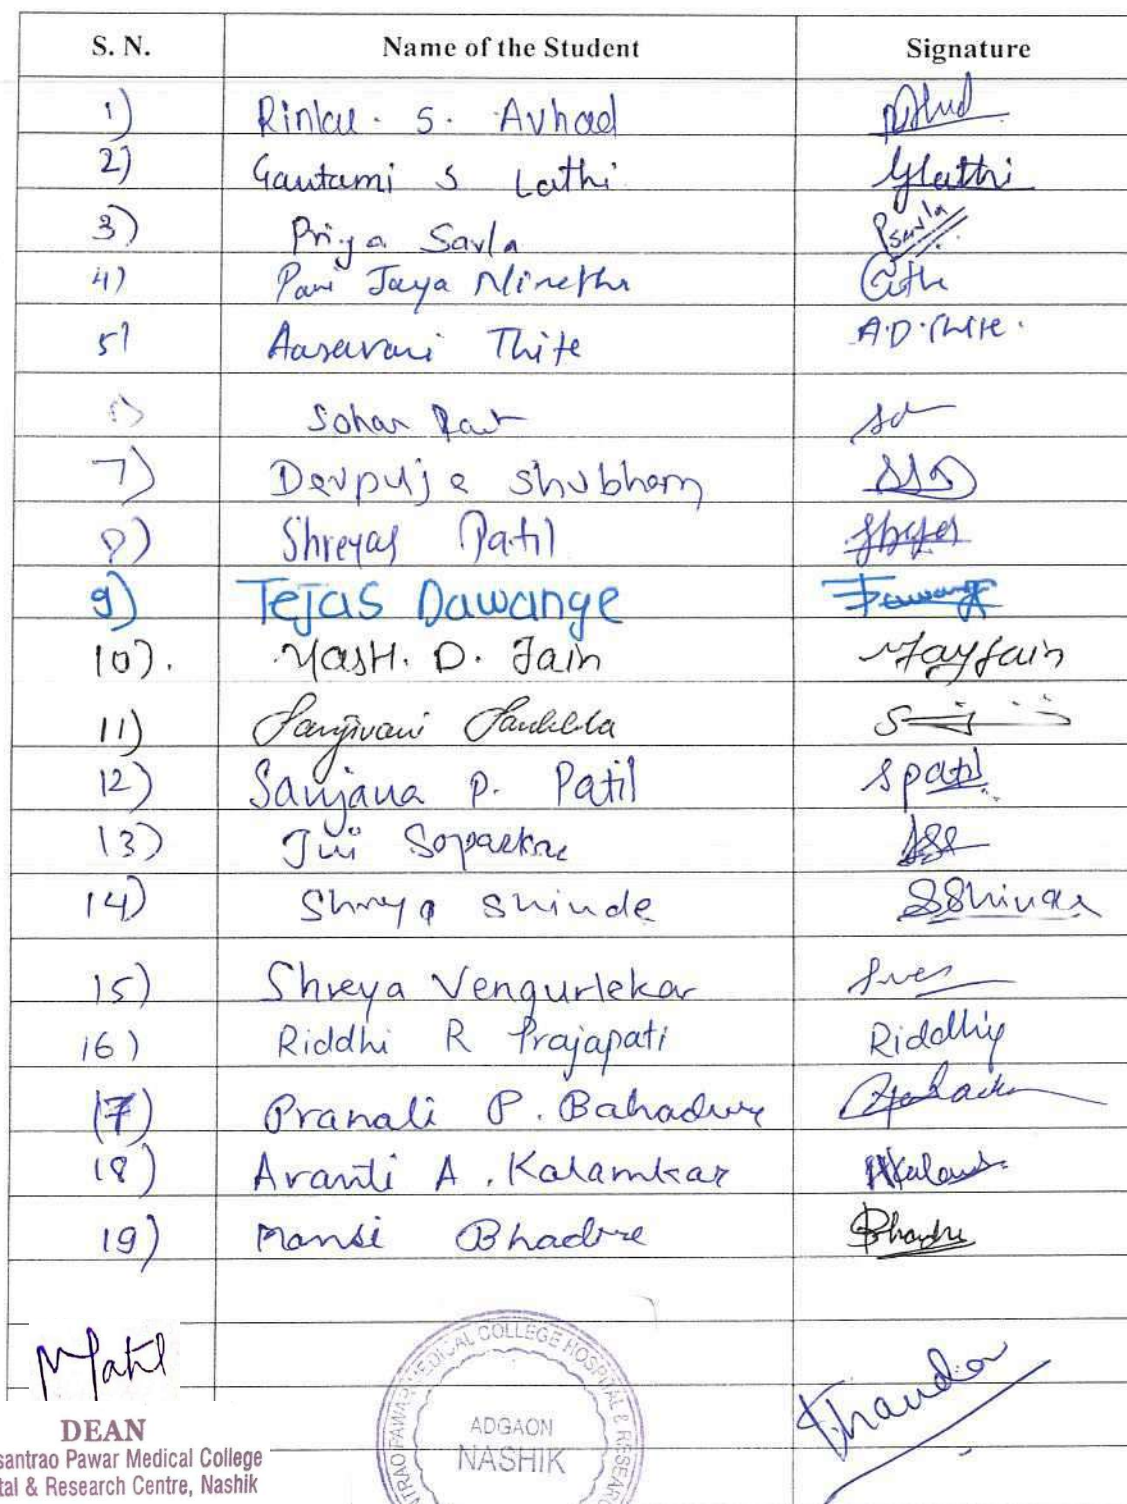 S. N. Name of the Student Signature
1) Rinku. S. Avhad
2) Gautami S Lathi GLathi
3) Priya Savla PSavla
4) Pari Jaya
5) Aasavari Thite A.D.Thite.
Sohan
7) Devpuja Shubham
8) Shreyas Patil
9) Tejas Dawange
10). Yash. D. Jain
11) Sanjivani
12) Sanjana P. Patil SPatil
13) Jui Soparkar
14) Shreya Shinde SShinde
15) Shreya Vengurlekar
16) Riddhi R Prajapati
17) Pranali P. Bahadure
18) Avanti A. Kalamkar
19) Mansi Bhadre Bhadre
Patil
DEAN
santrao Pawar Medical College
tal & Research Centre, Nashik
NTRAO PAWAR MEDICAL COLLEGE HOSPITAL & RESEAR
ADGAON
NASHIK